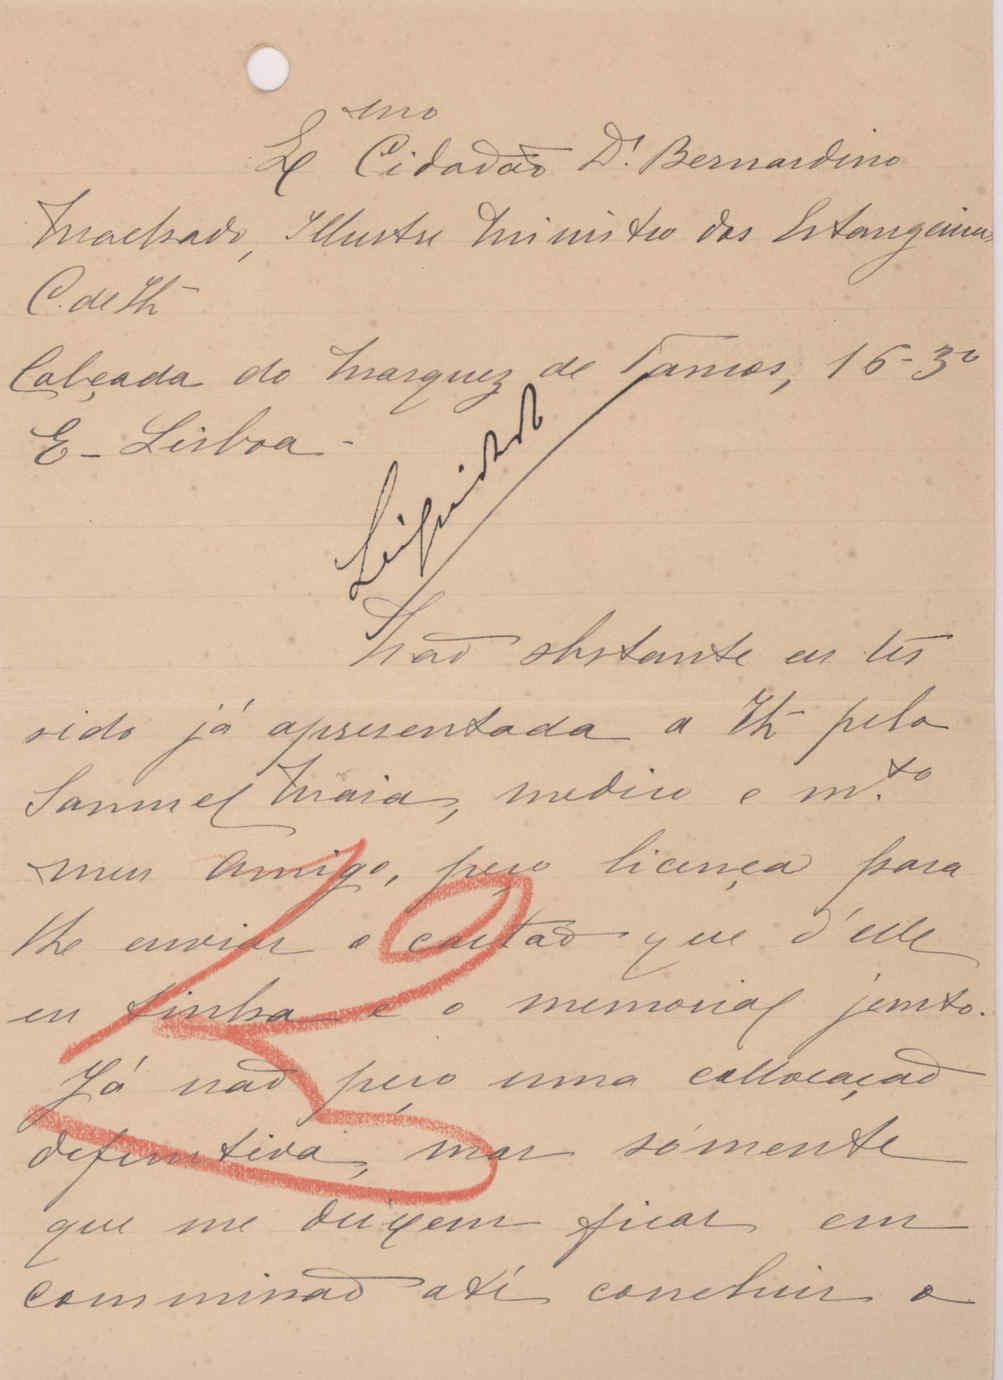 Exmo Cidadão Dr. Bernardino
Machado, Illustre Ministro dos Estrangeiros
C. de
Calçada do Marquez de Tancos, 16-3º
E- Lisboa -
Não obstante eu ter
sido já apresentada a pelo
Samuel Maia, medico e m.to
meu amigo, peço licença para
lhe enviar o cartão que d'elle
eu tinha e o memorial junto.
Já não peço uma collocação
definitiva, mas sómente
que me deixem ficar em
commissão até concluir o